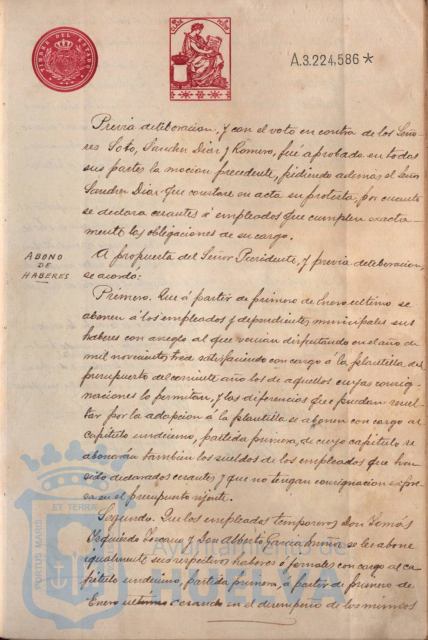 TIMBRE DEL ESTADO
A.3.224,586 *
Previa deliberacion, y con el voto en contra de los Seño-
res Soto, Sanchez Diaz y Romero, fué aprobada en todas
sus partes la mocion precedente, pidiendo ademas el Señor
Sanchez Diaz que constase en acta su protesta, por cuanto
se declara cesantes á empleados que cumplen exacta-
mente las obligaciones de su cargo.
ABONO
DE
HABERES
A propuesta del Señor Presidente, y previa deliberacion,
se acordó:
Primero. Que á partir de primero de Enero ultimo se
abonen á los empleados y dependientes municipales sus
haberes con arreglo al que venian disfrutando en el año de
mil novecientos trece satisfaciendo con cargo á la plantilla del
presupuesto del corriente año los de aquellos cuyas consig-
naciones lo permitan, y las diferencias que puedan resul-
tar por la adopcion á la plantilla se abonen con cargo al
capítulo undécimo, partida primera, de cuyo capítulo se
abonarán tambien los sueldos de los empleados que han
sido declarados cesantes y que no tengan consignacion expre-
sa en el presupuesto vijente.
Segundo. Que los empleados temporeros Don Tomás
Izquierdo y Don Alberto Garcia se les abone
igualmente sus respectivos haberes ó jornales con cargo al ca-
pítulo undécimo, partida primera, á partir de primero de
Enero ultimo cesando en el desempeño de los mismos
PORTUS MARIS ET TERRAE
Ayuntamiento de
HUELVA